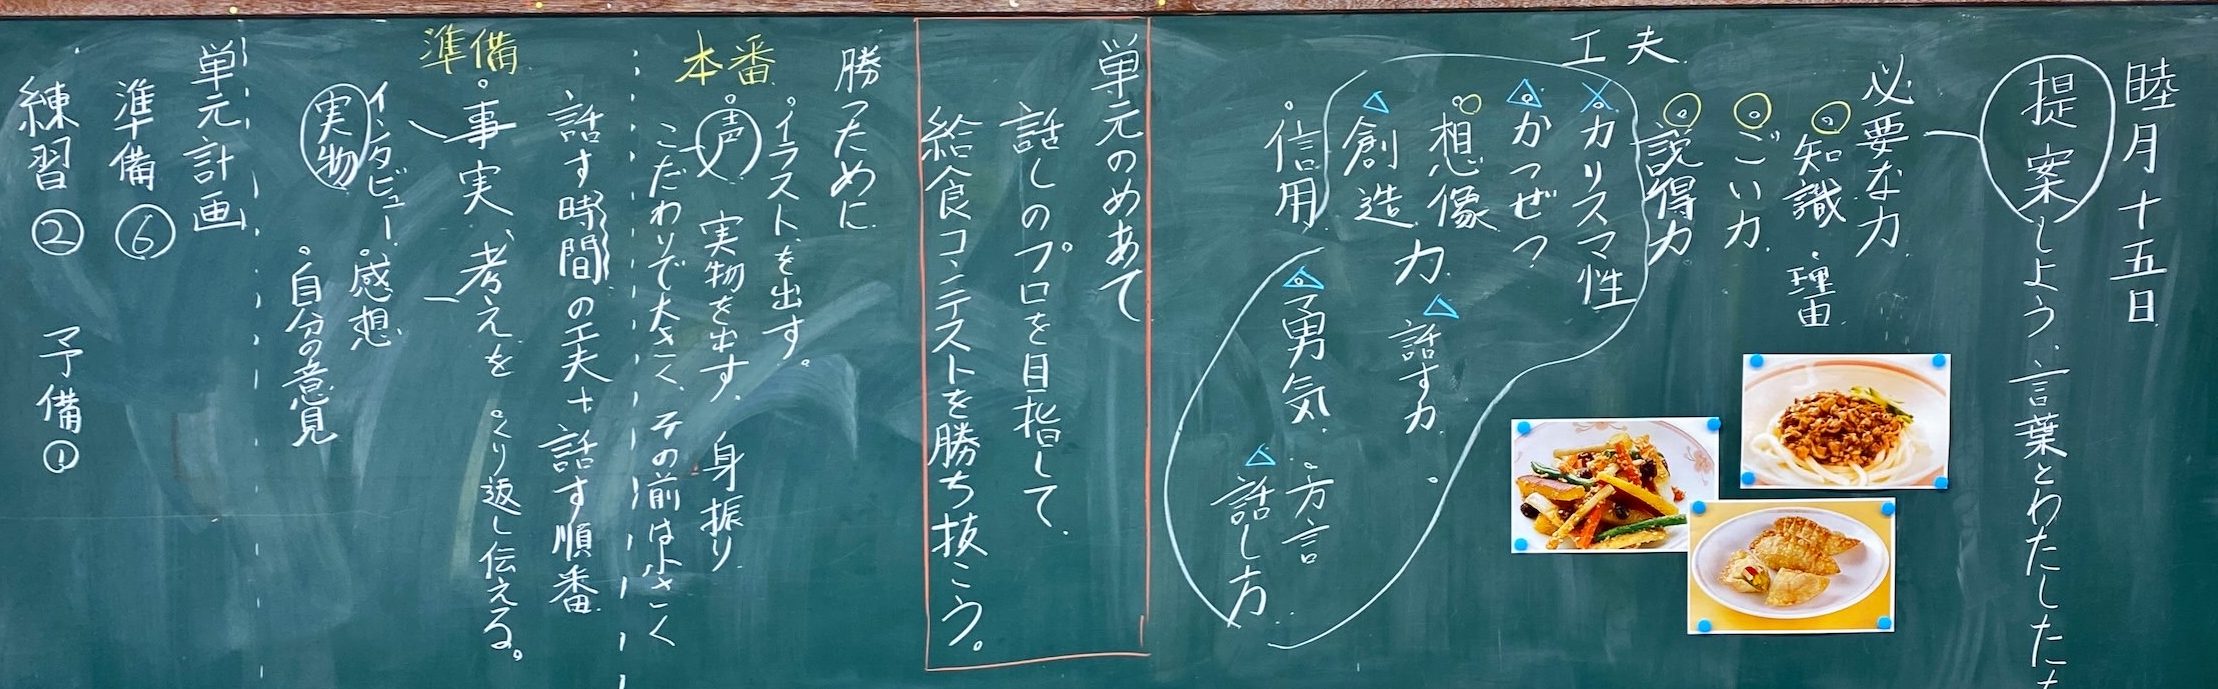 睦月十五日
提案しよう、言葉とわたした
必要な力
知識・理由
ごい力
説得力
工夫
カリスマ性
かつぜつ
想像力
創造
話す力
信用
勇気
方言
話し方
単元のめあて
話しのプロを目指して、
給食コンテストを勝ち抜こう。
勝ために
本番
イラストを出す。
声 実物を出す、身振り
こだわりで大きく、その前は小さく
話す時間の工夫+話す順番
準備
事実、考えを
くり返し伝える。
インタビュー
感想
実物
自分の意見
単元計画
準備⑥
練習② 予備①